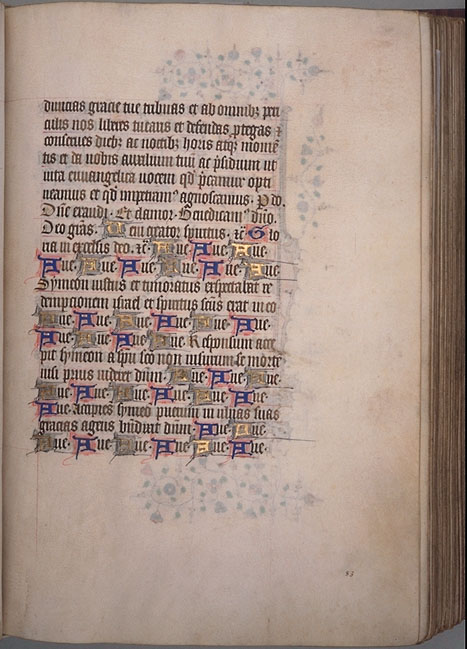 diuicias gracie tue tribuas et ab omnibꝫ peri
culis nos liberes tuearis et defendas ꝓtegas ⁊
conserues diebꝫ ac noctibꝫ horis atqꝫ momen
tis et da nobis auxilium tuū ac p̄sidium ut
iuxta euuangelica uocem qd̄ p̄camur opti
neamus et qd̄ impetram⁹ agnoscamus. P do.
Dn̄e exaudi. Et clamor. Benedicam⁹ dn̄o.
Deo grās. Veni creator spiritus. ⁊c̄ Glo
ria in excelsis deo. ⁊c̄. Aue Aue Aue.
Aue. Aue. Aue. Aue. Aue. Aue
Symeon iustus et timoratus expectabat re
demptionem israel et spiritus scūs erat in eo
Aue. Aue. Aue. Aue. Aue. Aue.
Aue. Aue. Aue. Aue. Responsum acce
pit symeon a spū sco non uisurum se morte
nisi prius uideret dn̄m. Aue. Aue. Aue.
Aue. Aue. Aue. Aue. Aue. Aue.
Aue. Accipies symeō puerum in ulnas suas
gracias agens bn̄dixit dn̄m. Aue. Aue.
Aue. Aue. Aue. Aue. Aue. Aue.
93